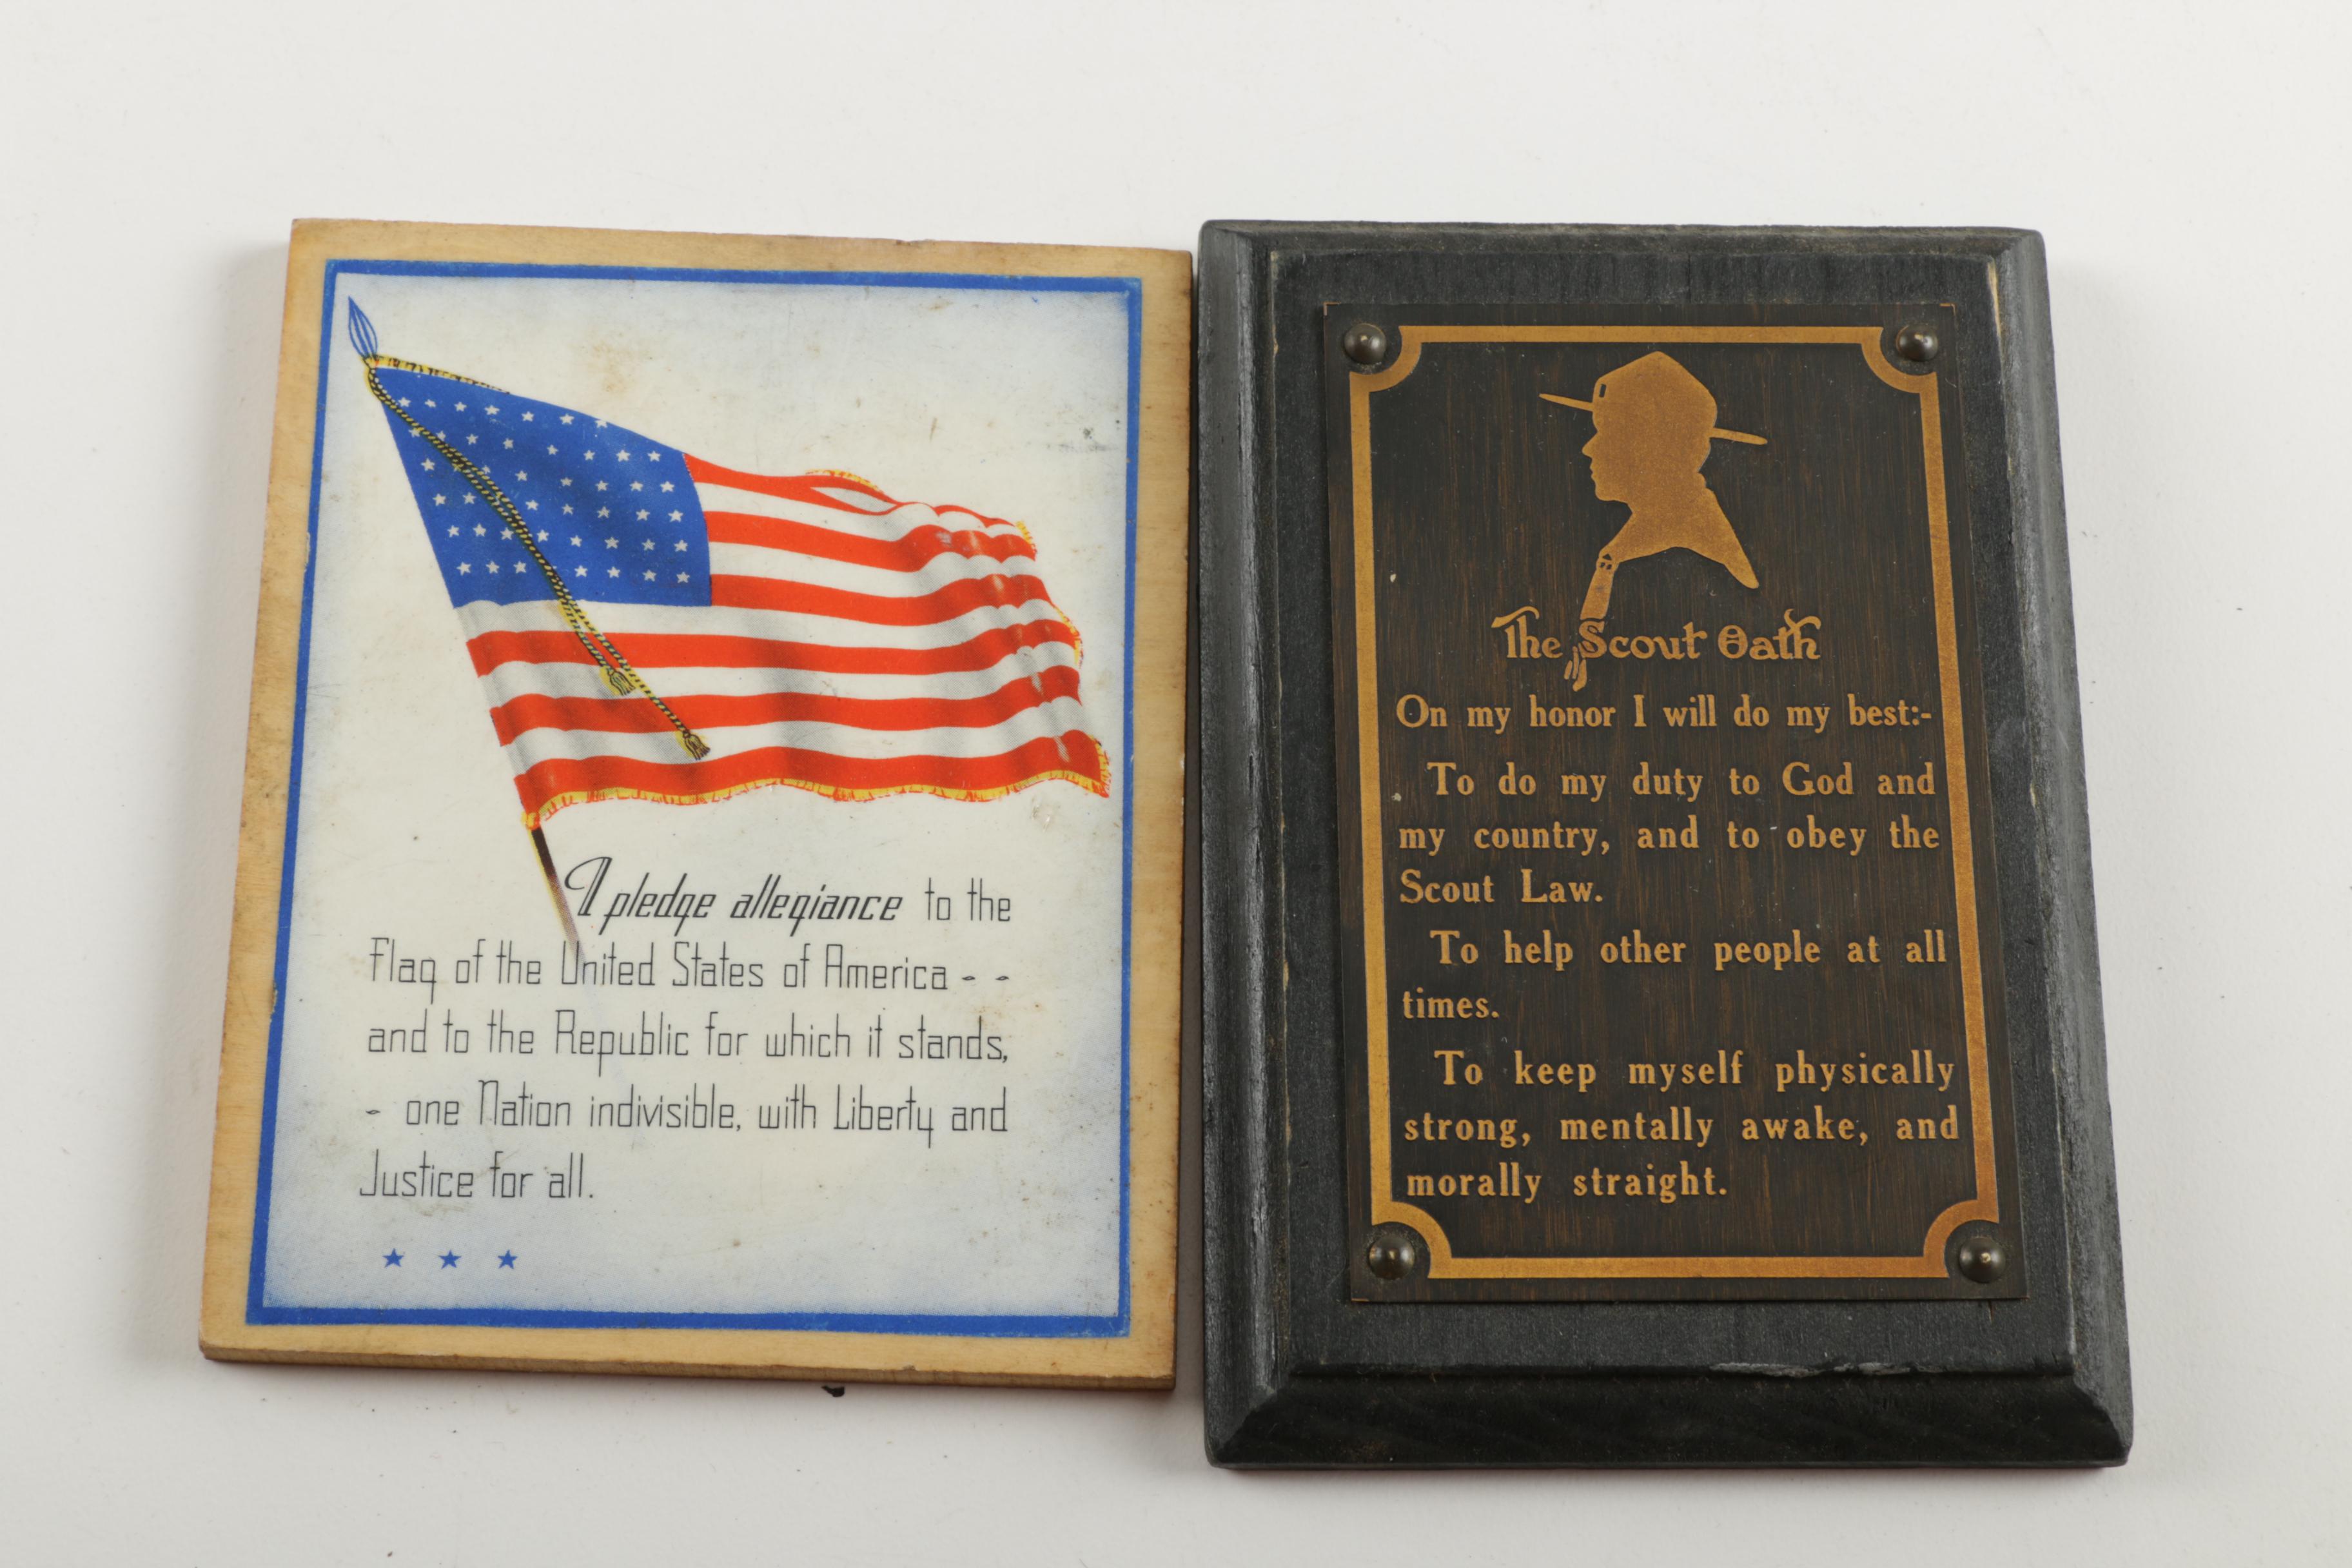 I pledge allegiance to the
Flag of the United States of America - -
and to the Republic for which it stands,
- one Nation indivisible, with Liberty and
Justice for all.
The Scout Oath
On my honor I will do my best:-
To do my duty to God and
my country, and to obey the
Scout Law.
To help other people at all
times.
To keep myself physically
strong, mentally awake, and
morally straight.